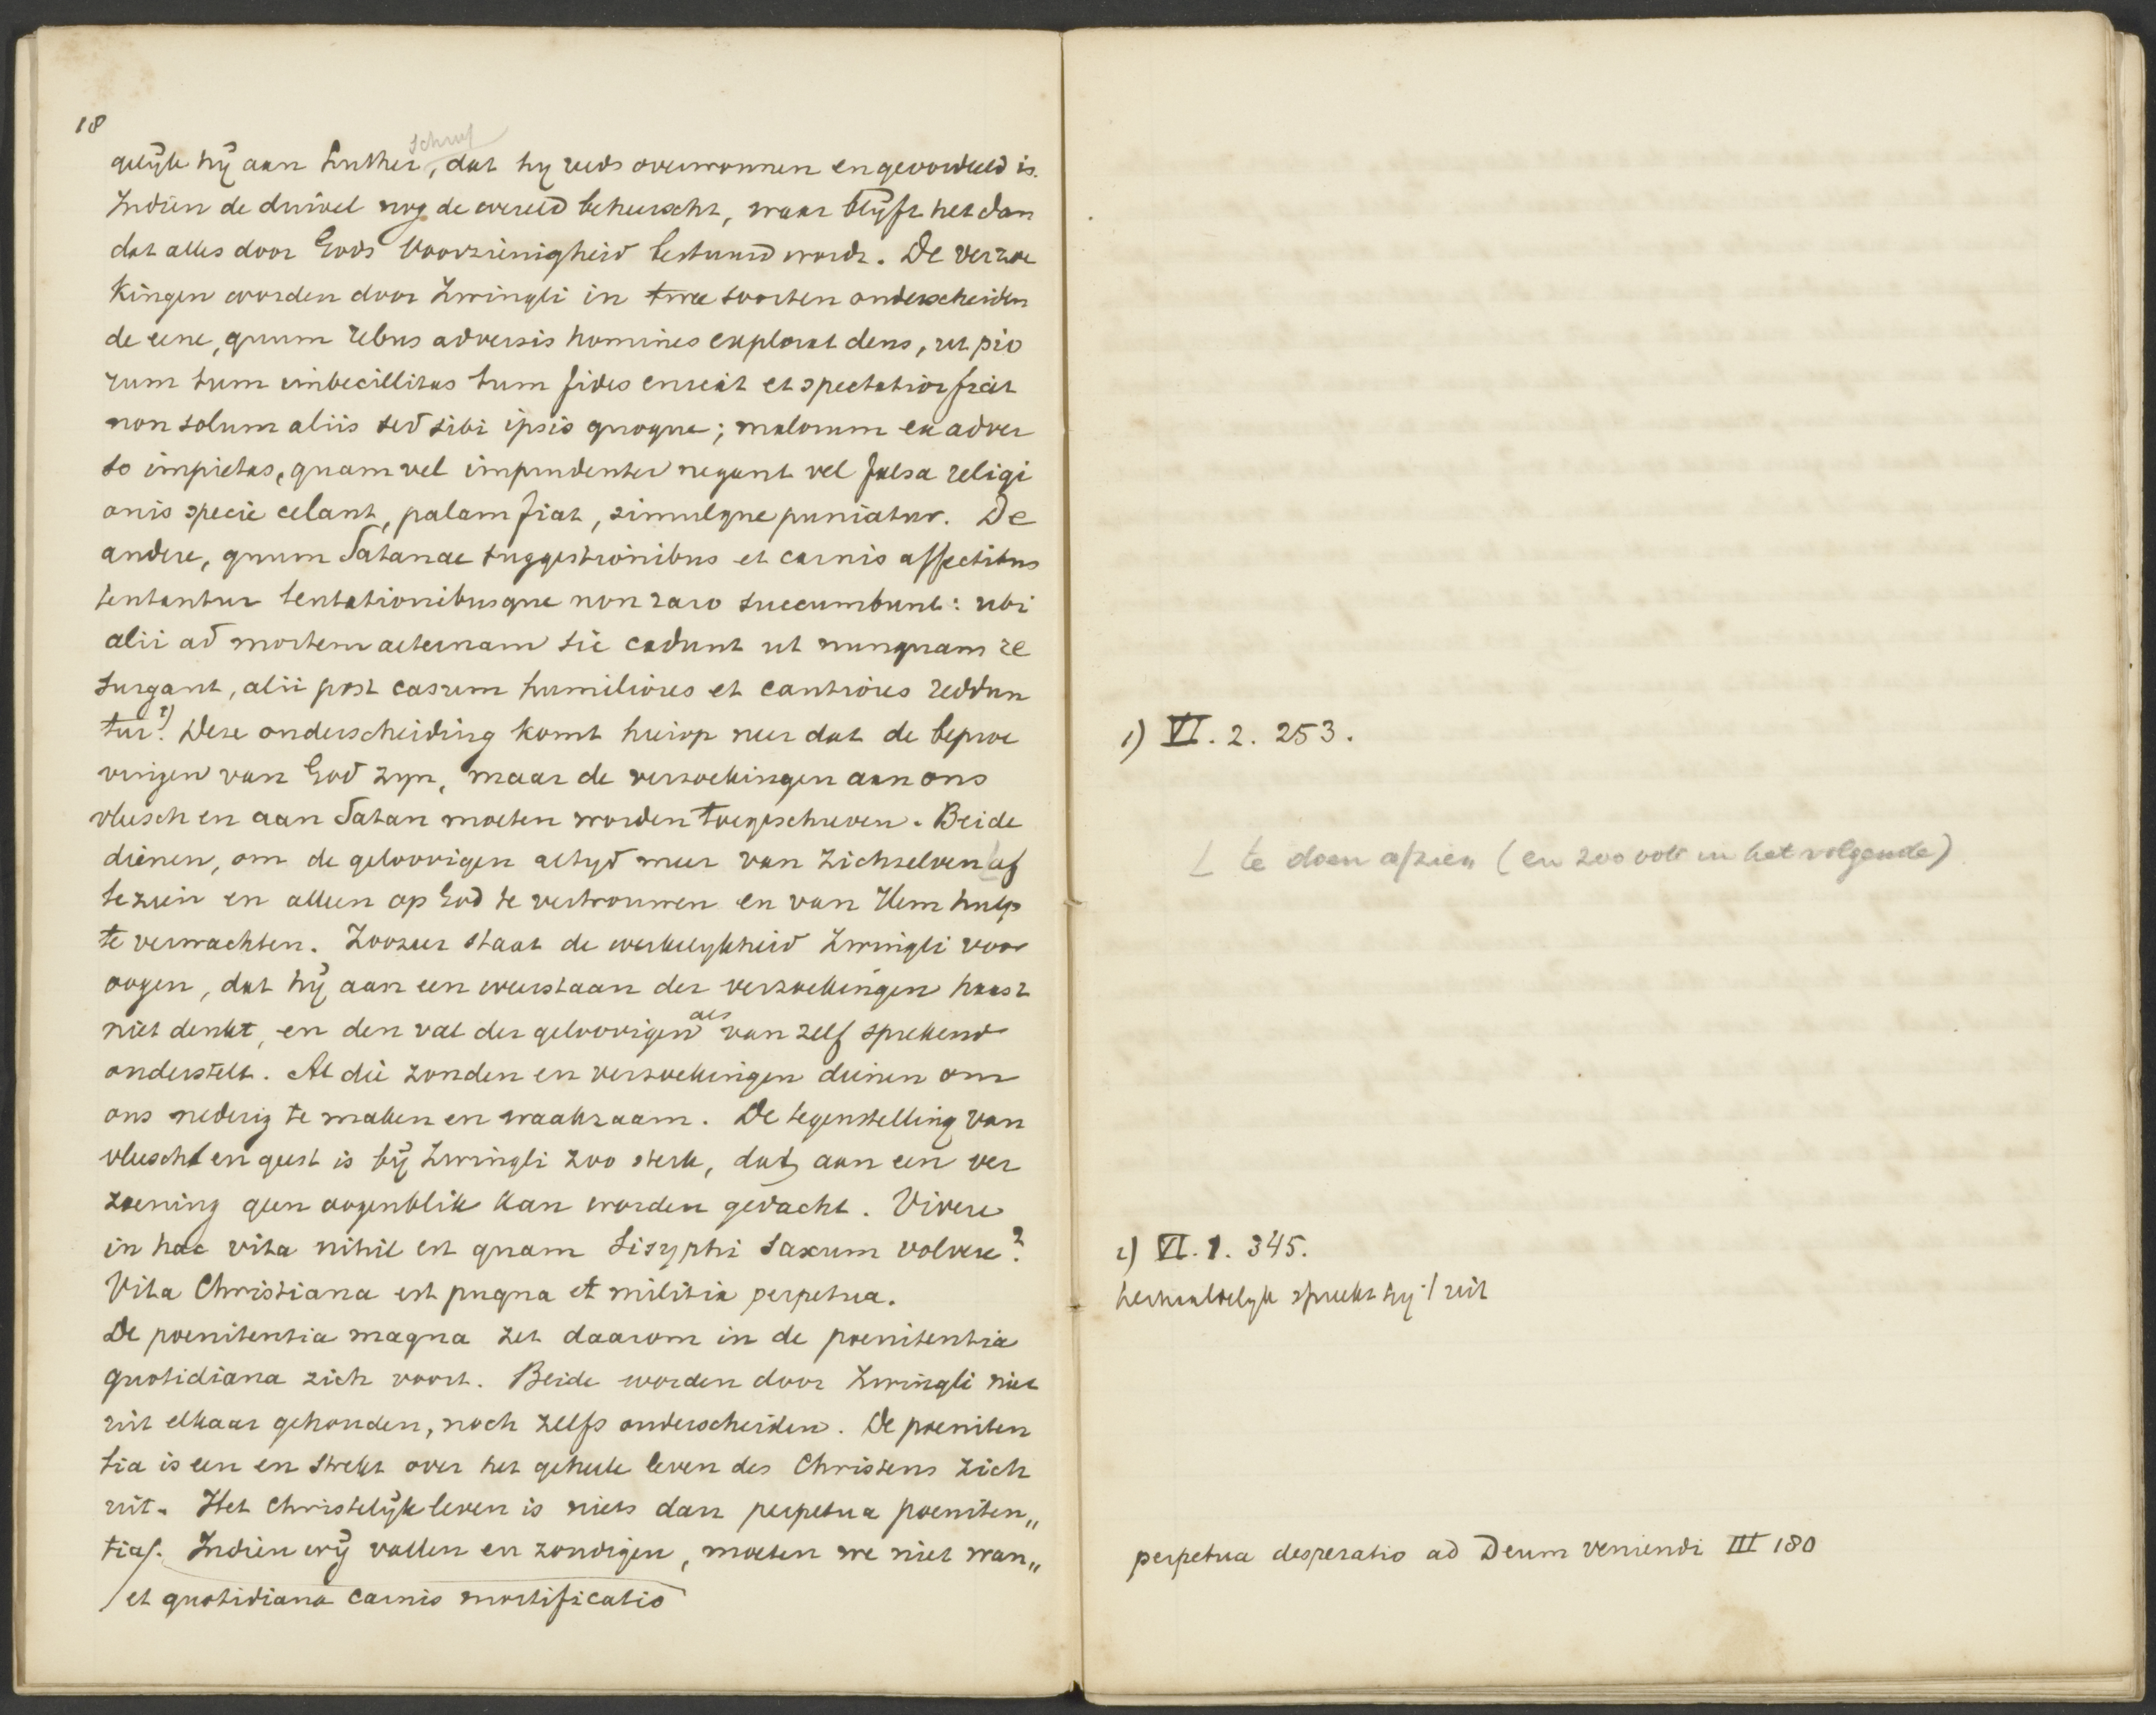 18
schreef
gelijk hij aan Luther, dat hy reeds overwonnen en geoordeeld is.
Indien de duivel nog de wereld beheerscht, waar blijft het dan
dat alles door Gods Voorzienigheid bestuurd wordt. De verzoe
kingen worden door Zwingli in twee soorten onderscheiden
de eene, quum rebus adversis homines explorat deus, ut pio
rum tum imbecillitas tum fides eniteat et spectatior fiat
non solum aliis sed sibi ipsis quoque; malorum ex adver
so impietas, quam vel impudenter negant vel falsa religi
onis specie celant, palam fiat, simulque puniatur. De
andere, quum Satanae suggestionibus et carnis affectibus
tentantur tentationibusque non raro succumbunt: ubi
alii ad mortem aeternam sic cadunt ut nunquam re
surgant, alii post casum humiliores et cautiores reddun
tur. 1) Deze onderscheiding komt hierop neer dat de beproe
vingen van God zyn, maar de verzoekingen aan ons
vleesch en aan Satan moeten worden toegeschreven. Beide
dienen, om de geloovigen altyd meer van zichzelven af
te zien en alleen op God te vertrouwen en van Hem hulp
te verwachten. Zoozeer staat de werkelykheid Zwingli voor
oogen, dat hij aan een weerstaan der verzoekingen haast
niet denkt, en den val der geloovigen als van zelf sprekend
onderstelt. Al die zonden en verzoekingen dienen om
ons nederig te maken en waakzaam. De tegenstelling van
vleesch en geest is bij Zwingli zoo sterk, dat aan een ver
zoening geen oogenblik kan worden gedacht. Vivere
in hac vita nihil est quam Sisyphi saxum volvere. 2
Vita Christiana est pugna et militia perpetua.
De poenitentia magna zet daarom in de poenitentia
quotidiana zich voort. Beide worden door Zwingli niet
uit elkaar gehouden, noch zelfs onderscheiden. De poeniten
tia is een en strekt over het geheele leven des Christens zich
uit. Het christelijk leven is niets dan perpetua poeniten„
tia/. Indien wij vallen en zondigen, moeten we niet wan„
/ et quotidiana carnis mortificatio
1) VI. 2. 253.
L te doen afzien (en zoo ook in het volgende)
2) VI. 1. 345.
herhaaldelyk spreekt hy 't uit
perpetua desperatio ad Deum veniendi III 180